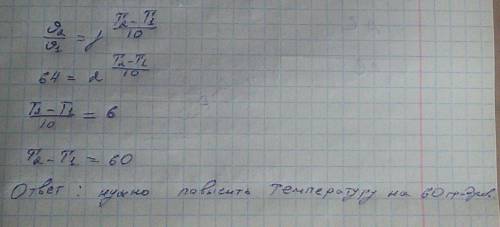 ϑ₂/ϑ₁ = γ^((T₂ − T₁)/10)
64 = 2^((T₂ − T₁)/10)
(T₂ − T₁)/10 = 6
T₂ − T₁ = 60
Ответ: нужно повысить температуру на 60 градусов.